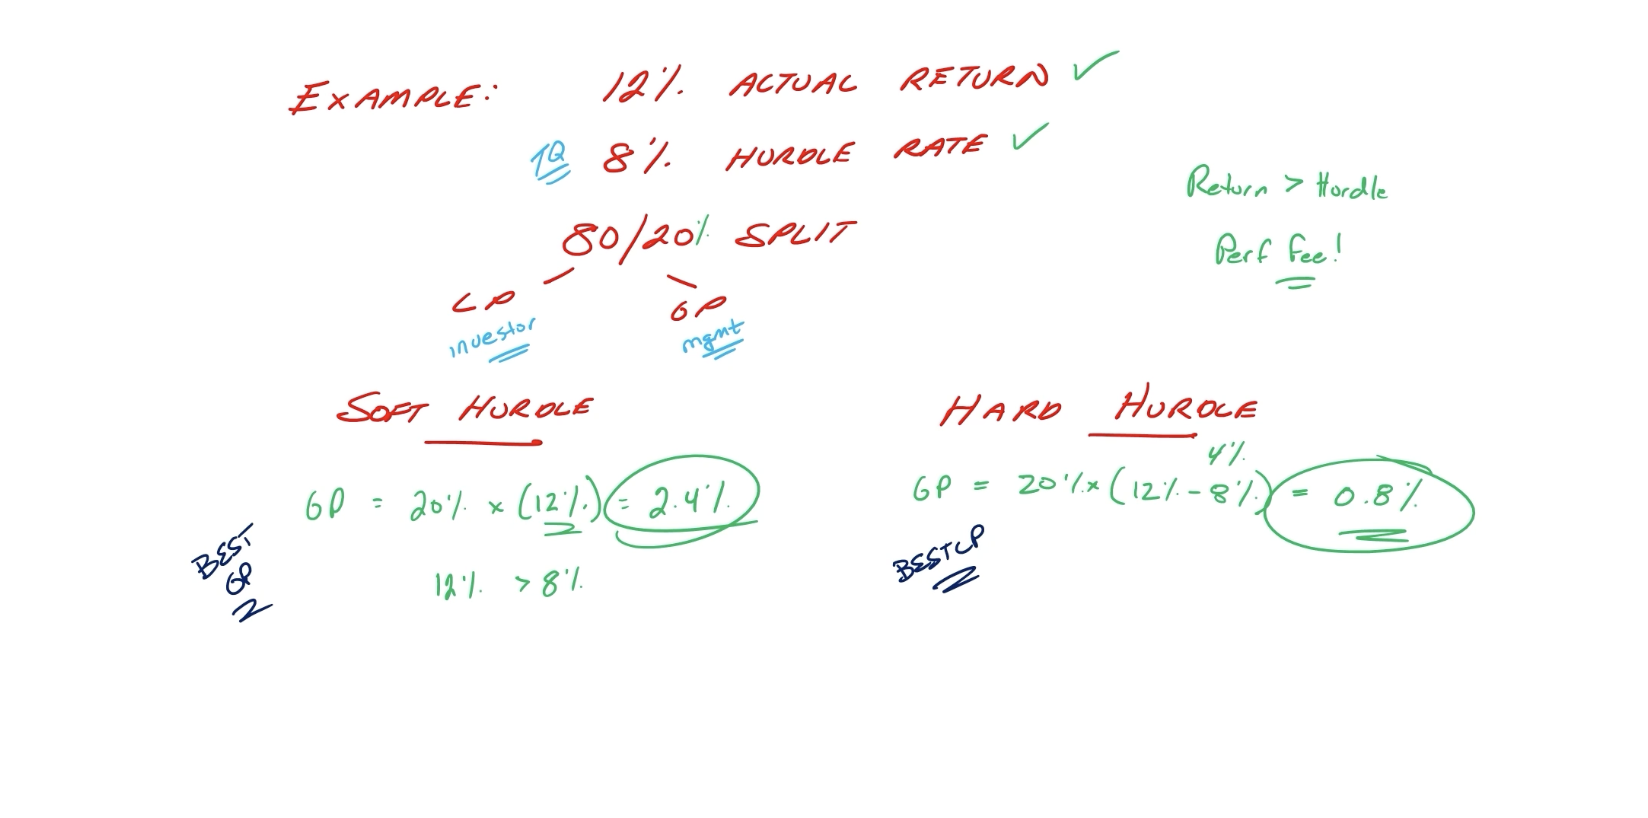 EXAMPLE: 12% ACTUAL RETURN ✓
8% HURDLE RATE ✓
80/20% SPLIT
LP GP
investor mgmt
Return > Hurdle
Perf Fee!
SOFT HURDLE
GP = 20% × (12%) = 2.4%
12% > 8%
BEST
GP
HARD HURDLE
4%
GP = 20% × (12% - 8%) = 0.8%
BEST LP